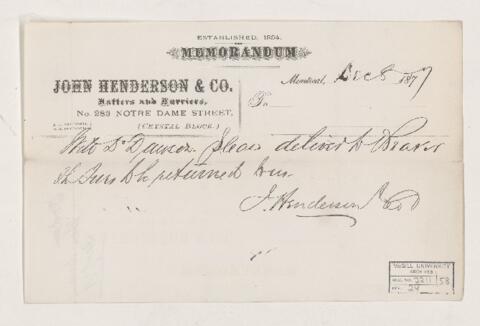 ESTABLISHED, 1834.
MEMORANDUM
JOHN HENDERSON & CO.
Hatters and Furriers,
No. 283 NOTRE DAME STREET,
(CRYSTAL BLOCK.)
Montreal, Dec 8 1877
To
Dawson. Please deliver to Bearer
Furs to be returned
J. Henderson & Co
McGILL UNIVERSITY
ARCHIVES
ACC. NO. 2211 58